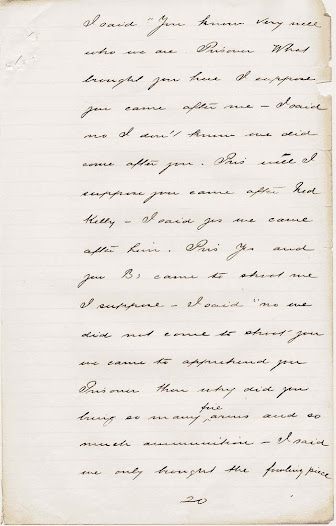 I said "You know very well
who we are. Prisoner What
brought you here I suppose
you came after me – I said
no I don't know we did
come after you. Pris well I
suppose you came after Ned
Kelly – I said yes we came
after him. Pris Yes and
you Bs came to shoot me
I suppose – I said "no we
did not come to shoot you
we came to apprehend you
Prisoner then why did you
bring so many fire arms and so
much ammunition – I said
we only brought the fowling piece
20